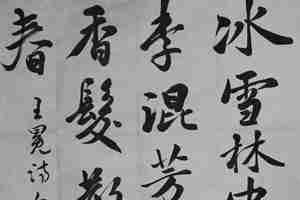 冰雪林中
李混芳
香髮散
春 王冕诗